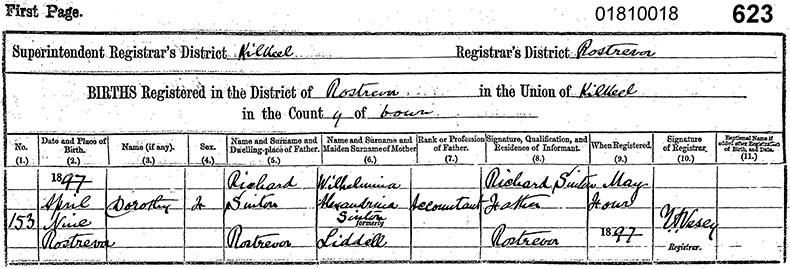 First Page. 01810018 623
Superintendent Registrar's District Kilkeel Registrar's District Rostrevor
BIRTHS Registered in the District of Rostrevor in the Union of Kilkeel
in the County of Down
No. Date and Place of Birth. Name (if any). Sex. Name and Surname and Dwelling-place of Father. Name and Surname and Maiden Surname of Mother Rank or Profession of Father. Signature, Qualification, and Residence of Informant. When Registered. Signature of Registrar. Baptismal Name if added after Registration of Birth, and Date.
(1.) (2.) (3.) (4.) (5.) (6.) (7.) (8.) (9.) (10.) (11.)
1897 Richard Wilhelmina Richard Sinton May
April Dorothy F Sinton Alexandrina Accountant Father Four
153 Nine Sinton formerly Vesey
Rostrevor Rostrevor Liddell Rostrevor 1897 Registrar.